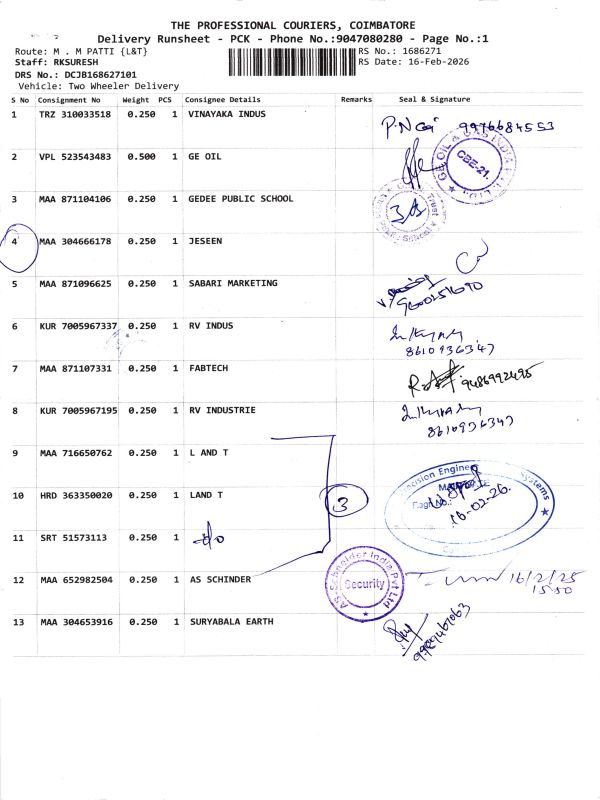 THE PROFESSIONAL COURIERS, COIMBATORE
Delivery Runsheet - PCK - Phone No.:9047080280 - Page No.:1
Route: M . M PATTI {L&T}
RS No.: 1686271
Staff: RKSURESH
RS Date: 16-Feb-2026
DRS No.: DCJB168627101
Vehicle: Two Wheeler Delivery
S No Consignment No Weight PCS Consignee Details Remarks Seal & Signature
1 TRZ 310033518 0.250 1 VINAYAKA INDUS
9976684553
2 VPL 523543483 0.500 1 GE OIL
GE OIL & GAS INDIA
CBE-21.
3 MAA 871104106 0.250 1 GEDEE PUBLIC SCHOOL
4 MAA 304666178 0.250 1 JESEEN
5 MAA 871096625 0.250 1 SABARI MARKETING
9600251690
6 KUR 7005967337 0.250 1 RV INDUS
8610936347
7 MAA 871107331 0.250 1 FABTECH
9486992495
8 KUR 7005967195 0.250 1 RV INDUSTRIE
8610936347
9 MAA 716650762 0.250 1 L AND T
10 HRD 363350020 0.250 1 LAND T
3
Precision Engineering Systems
16-02-26.
11 SRT 51573113 0.250 1 d/o
12 MAA 652982504 0.250 1 AS SCHINDER
A.S. Schneider India Pvt Ltd
Security
16/2/25
1550
13 MAA 304653916 0.250 1 SURYABALA EARTH
9789467063